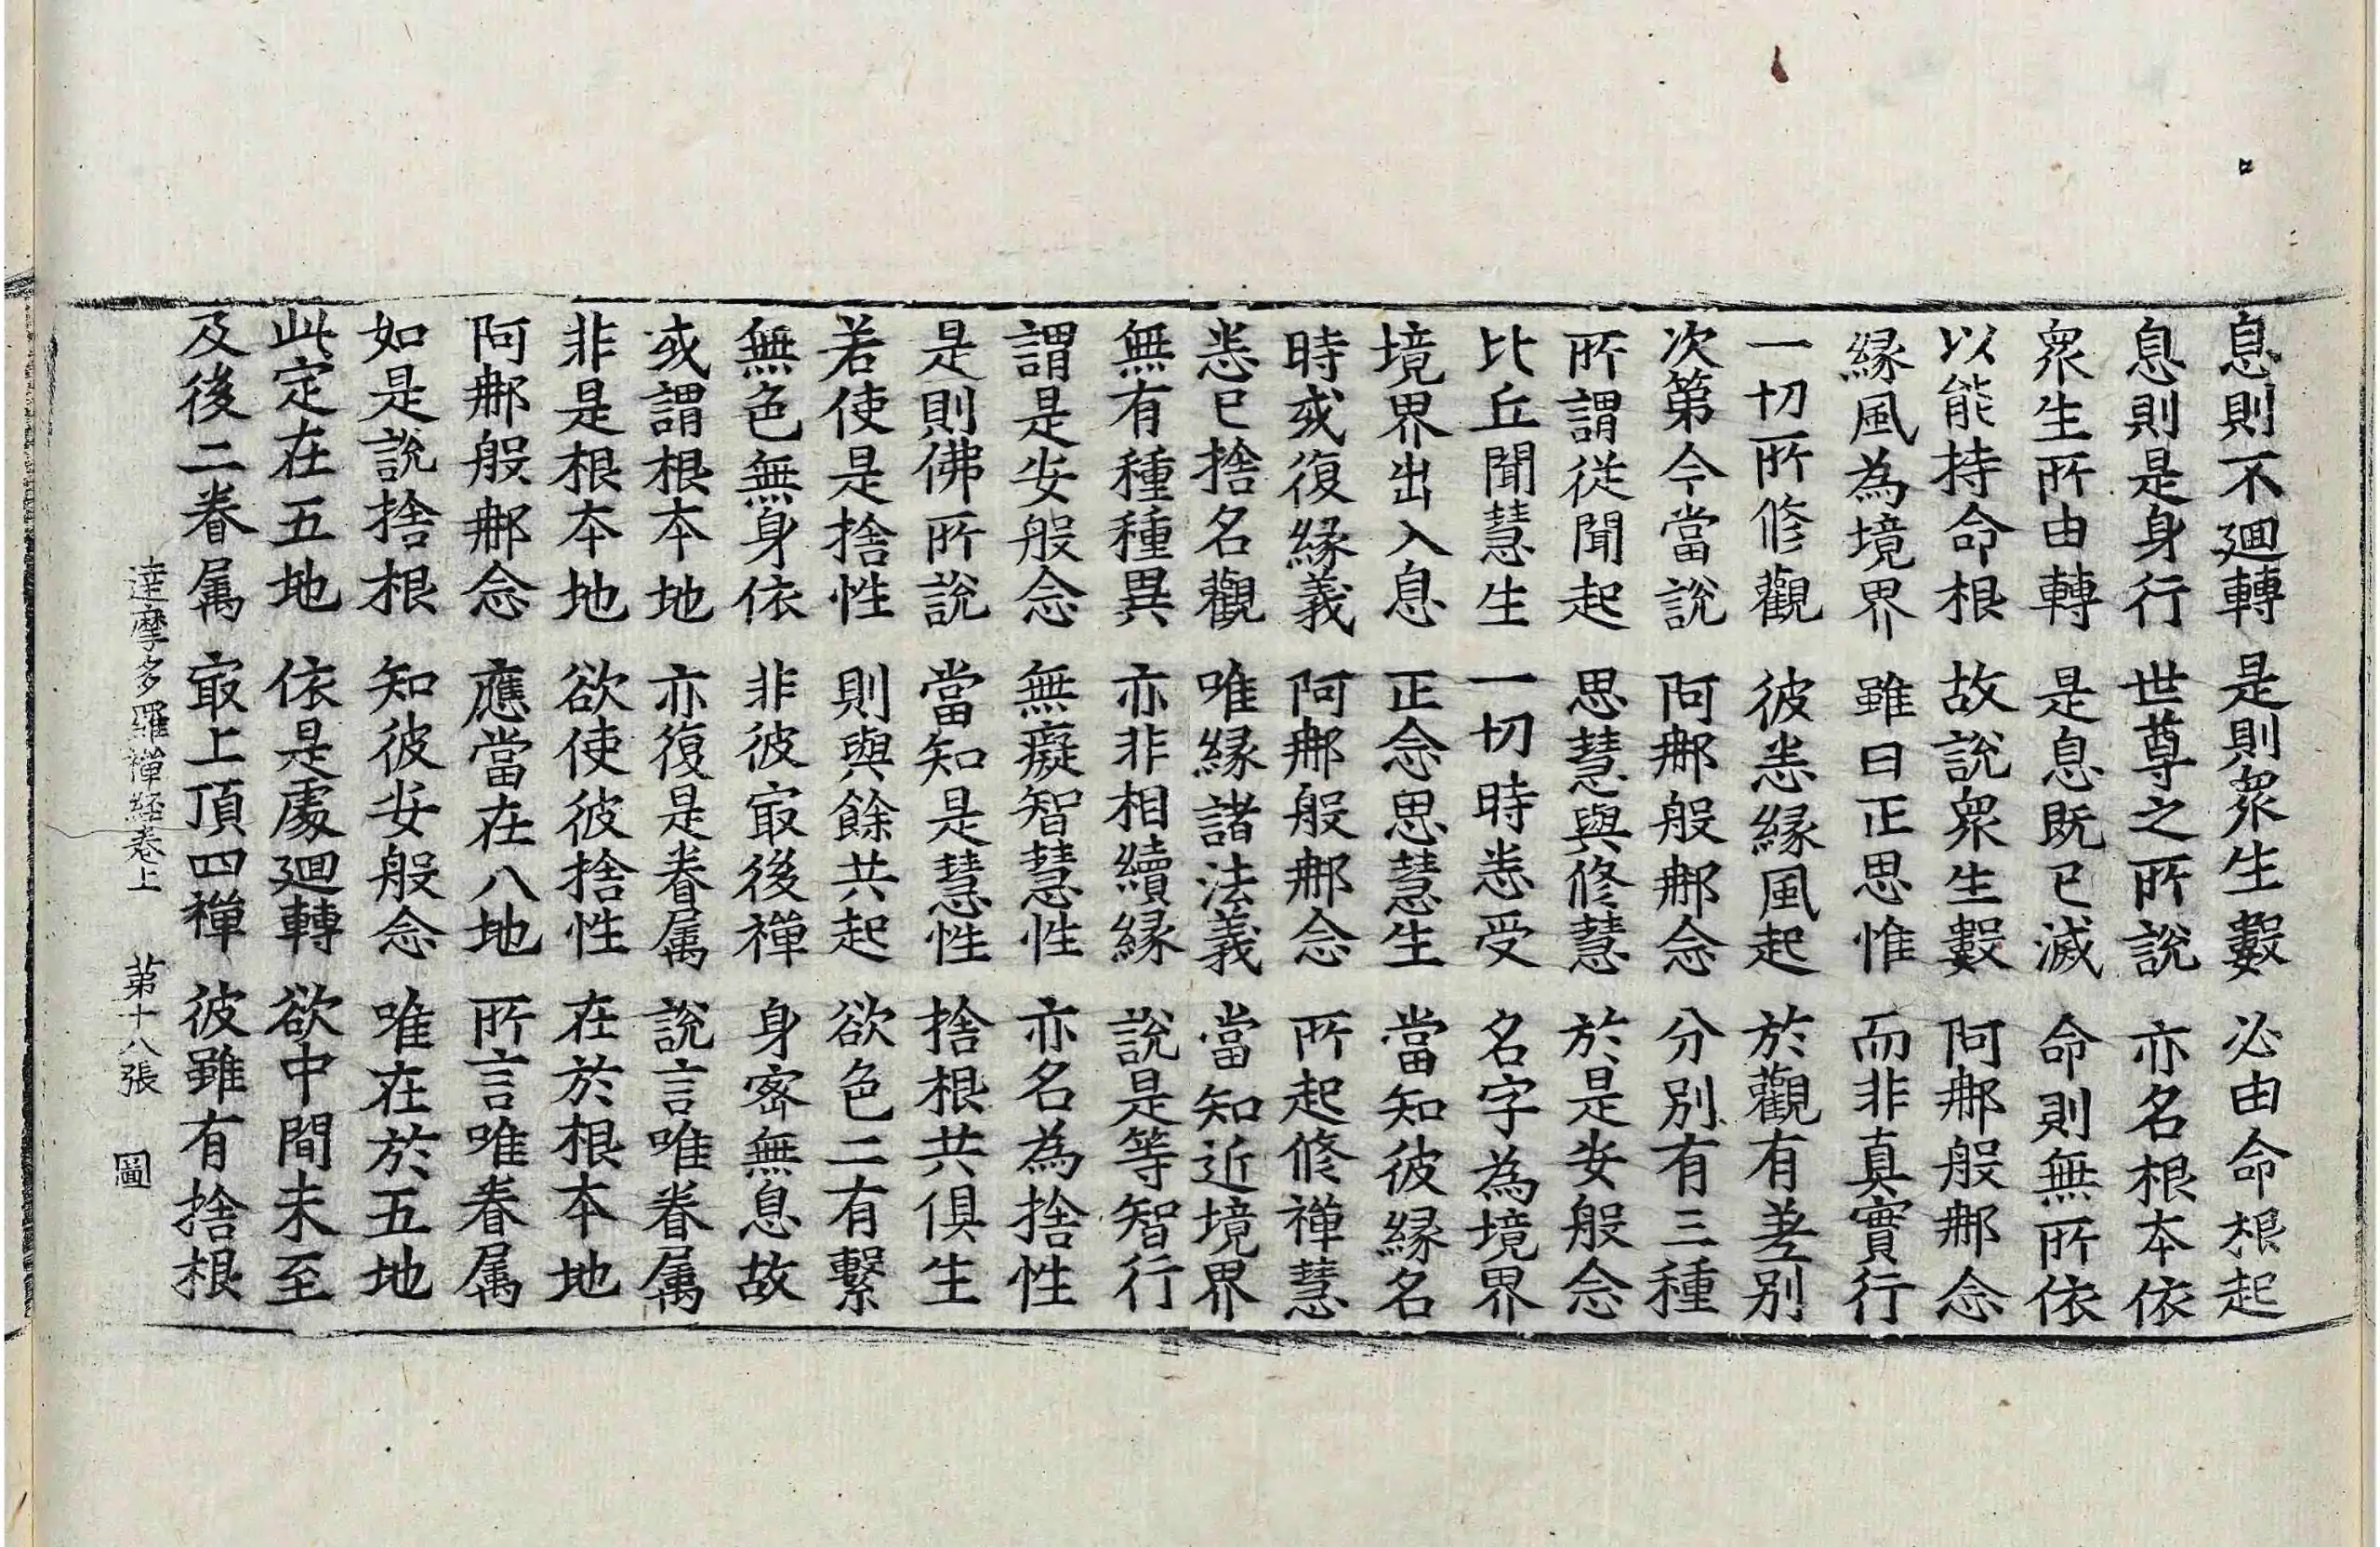 息則不廻轉　是則衆生數　必由命根起
息則是身行　世尊之所說　亦名根本依
衆生所由轉　是息既已滅　命則無所依
以能持命根　故說衆生數　阿那般那念
緣風為境界　雖曰正思惟　而非真實行
一切所修觀　彼悉緣風起　於觀有差別
次第今當說　阿那般那念　分別有三種
所謂從聞起　思慧與修慧　於是安般念
比丘聞慧生　一切時悉受　名字為境界
境界出入息　正念思慧生　當知彼緣名
時或復緣義　阿那般那念　所起修禪慧
悉已捨名觀　唯緣諸法義　當知近境界
無有種種異　亦非相續緣　說是等智行
謂是安般念　無癡智慧性　亦名為捨性
是則佛所說　當知是慧性　捨根共俱生
若使是捨性　則與餘共起　欲色二有繫
無色無身依　非彼㝡後禪　身密無息故
或謂根本地　亦復是眷属　說言唯眷属
非是根本地　欲使彼捨性　在於根本地
阿那般那念　應當在八地　所言唯眷属
如是說捨根　知彼安般念　唯在於五地
此定在五地　依是處廻轉　欲中間未至
及後二眷属　㝡上頂四禪　彼雖有捨根
達摩多羅禪経卷上　第十八張　圖